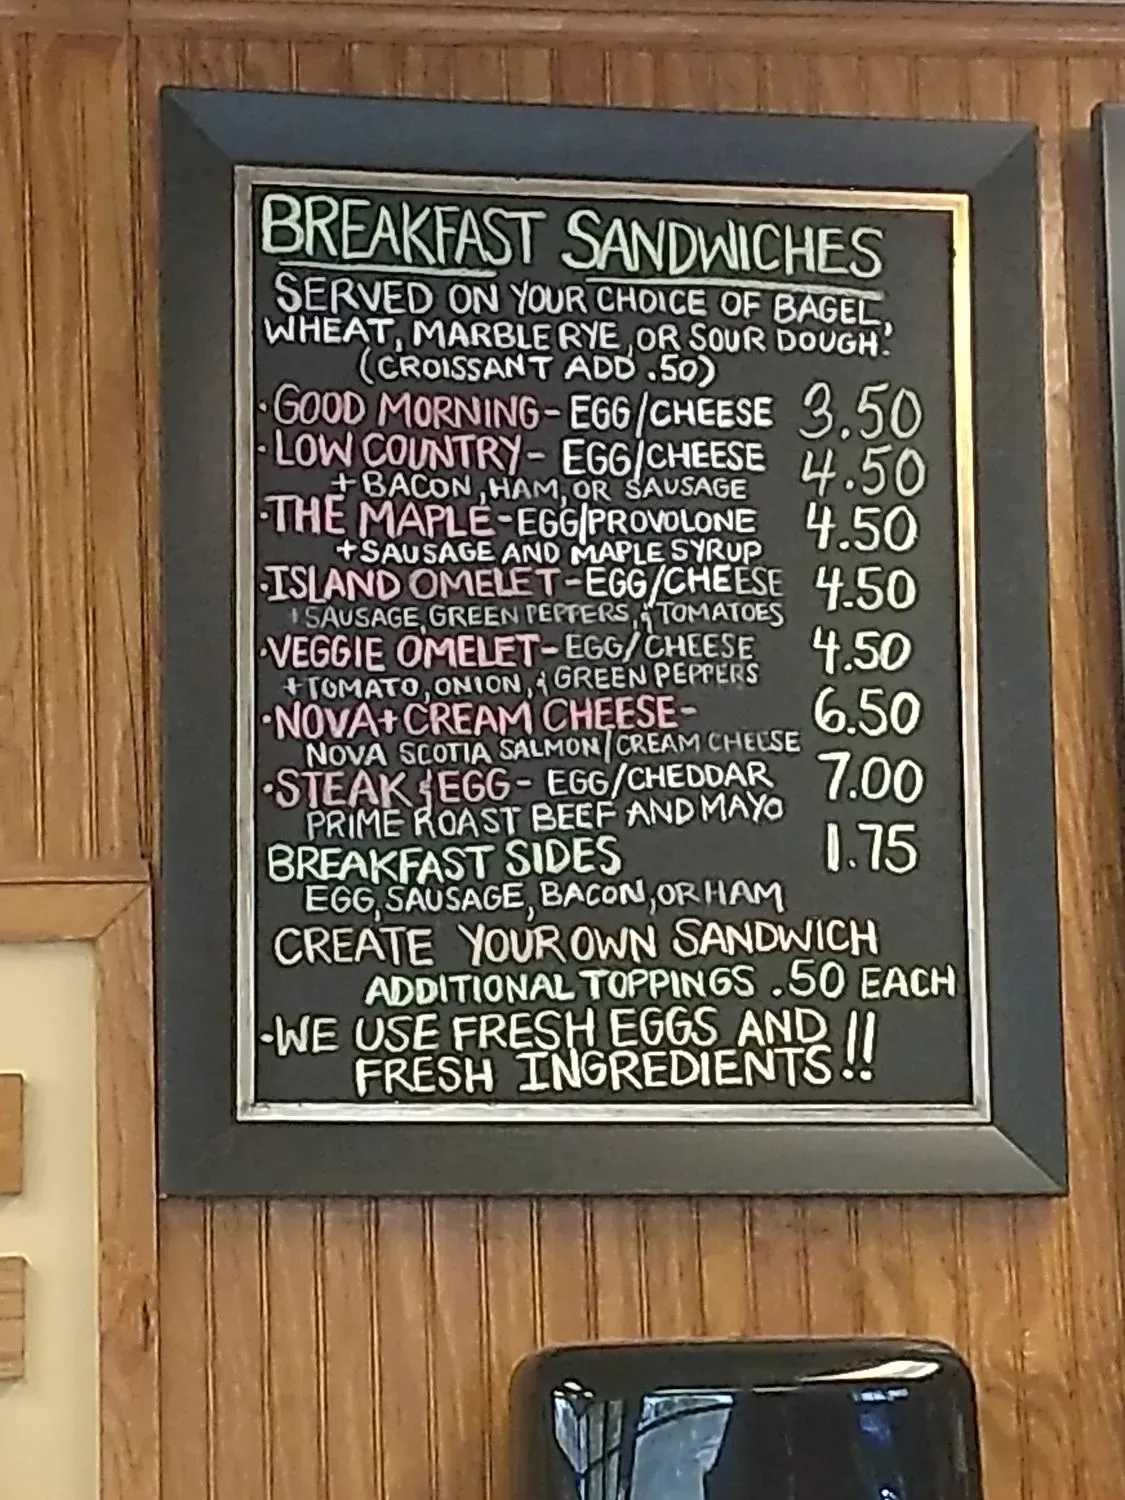 BREAKFAST SANDWICHES
SERVED ON YOUR CHOICE OF BAGEL,
WHEAT, MARBLE RYE, OR SOUR DOUGH.
(CROISSANT ADD .50)
·GOOD MORNING- EGG/CHEESE 3.50
·LOW COUNTRY- EGG/CHEESE 4.50
+BACON, HAM, OR SAUSAGE
·THE MAPLE-EGG/PROVOLONE 4.50
+SAUSAGE AND MAPLE SYRUP
·ISLAND OMELET-EGG/CHEESE 4.50
+SAUSAGE, GREEN PEPPERS, & TOMATOES
·VEGGIE OMELET-EGG/CHEESE 4.50
+TOMATO, ONION, & GREEN PEPPERS
·NOVA+CREAM CHEESE- 6.50
NOVA SCOTIA SALMON/CREAM CHEESE
·STEAK & EGG- EGG/CHEDDAR 7.00
PRIME ROAST BEEF AND MAYO
BREAKFAST SIDES 1.75
EGG, SAUSAGE, BACON, OR HAM
CREATE YOUR OWN SANDWICH
ADDITIONAL TOPPINGS .50 EACH
·WE USE FRESH EGGS AND
FRESH INGREDIENTS!!